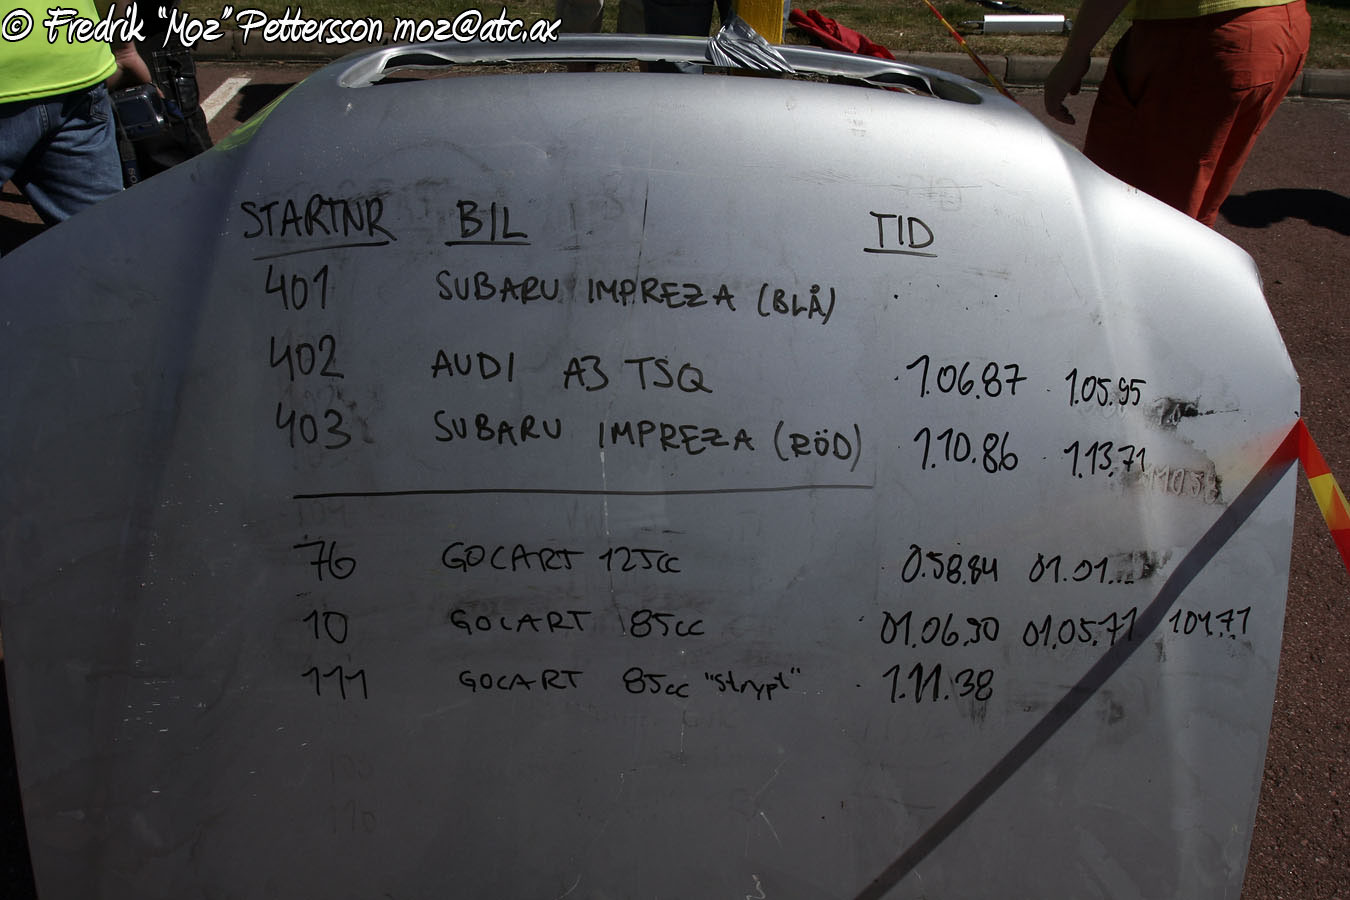 © Fredrik "Moz" Pettersson moz@atc.ax
STARTNR BIL TID
401 SUBARU IMPREZA (BLÅ)
402 AUDI A3 TSQ 1.06.87 1.05.95
403 SUBARU IMPREZA (RÖD) 1.10.86 1.13.71
76 GOCART 125cc 0.58.84 01.01...
10 GOCART 85cc 01.06.90 01.05.71 1.04.71
111 GOCART 85cc "Strypt" 1.11.38